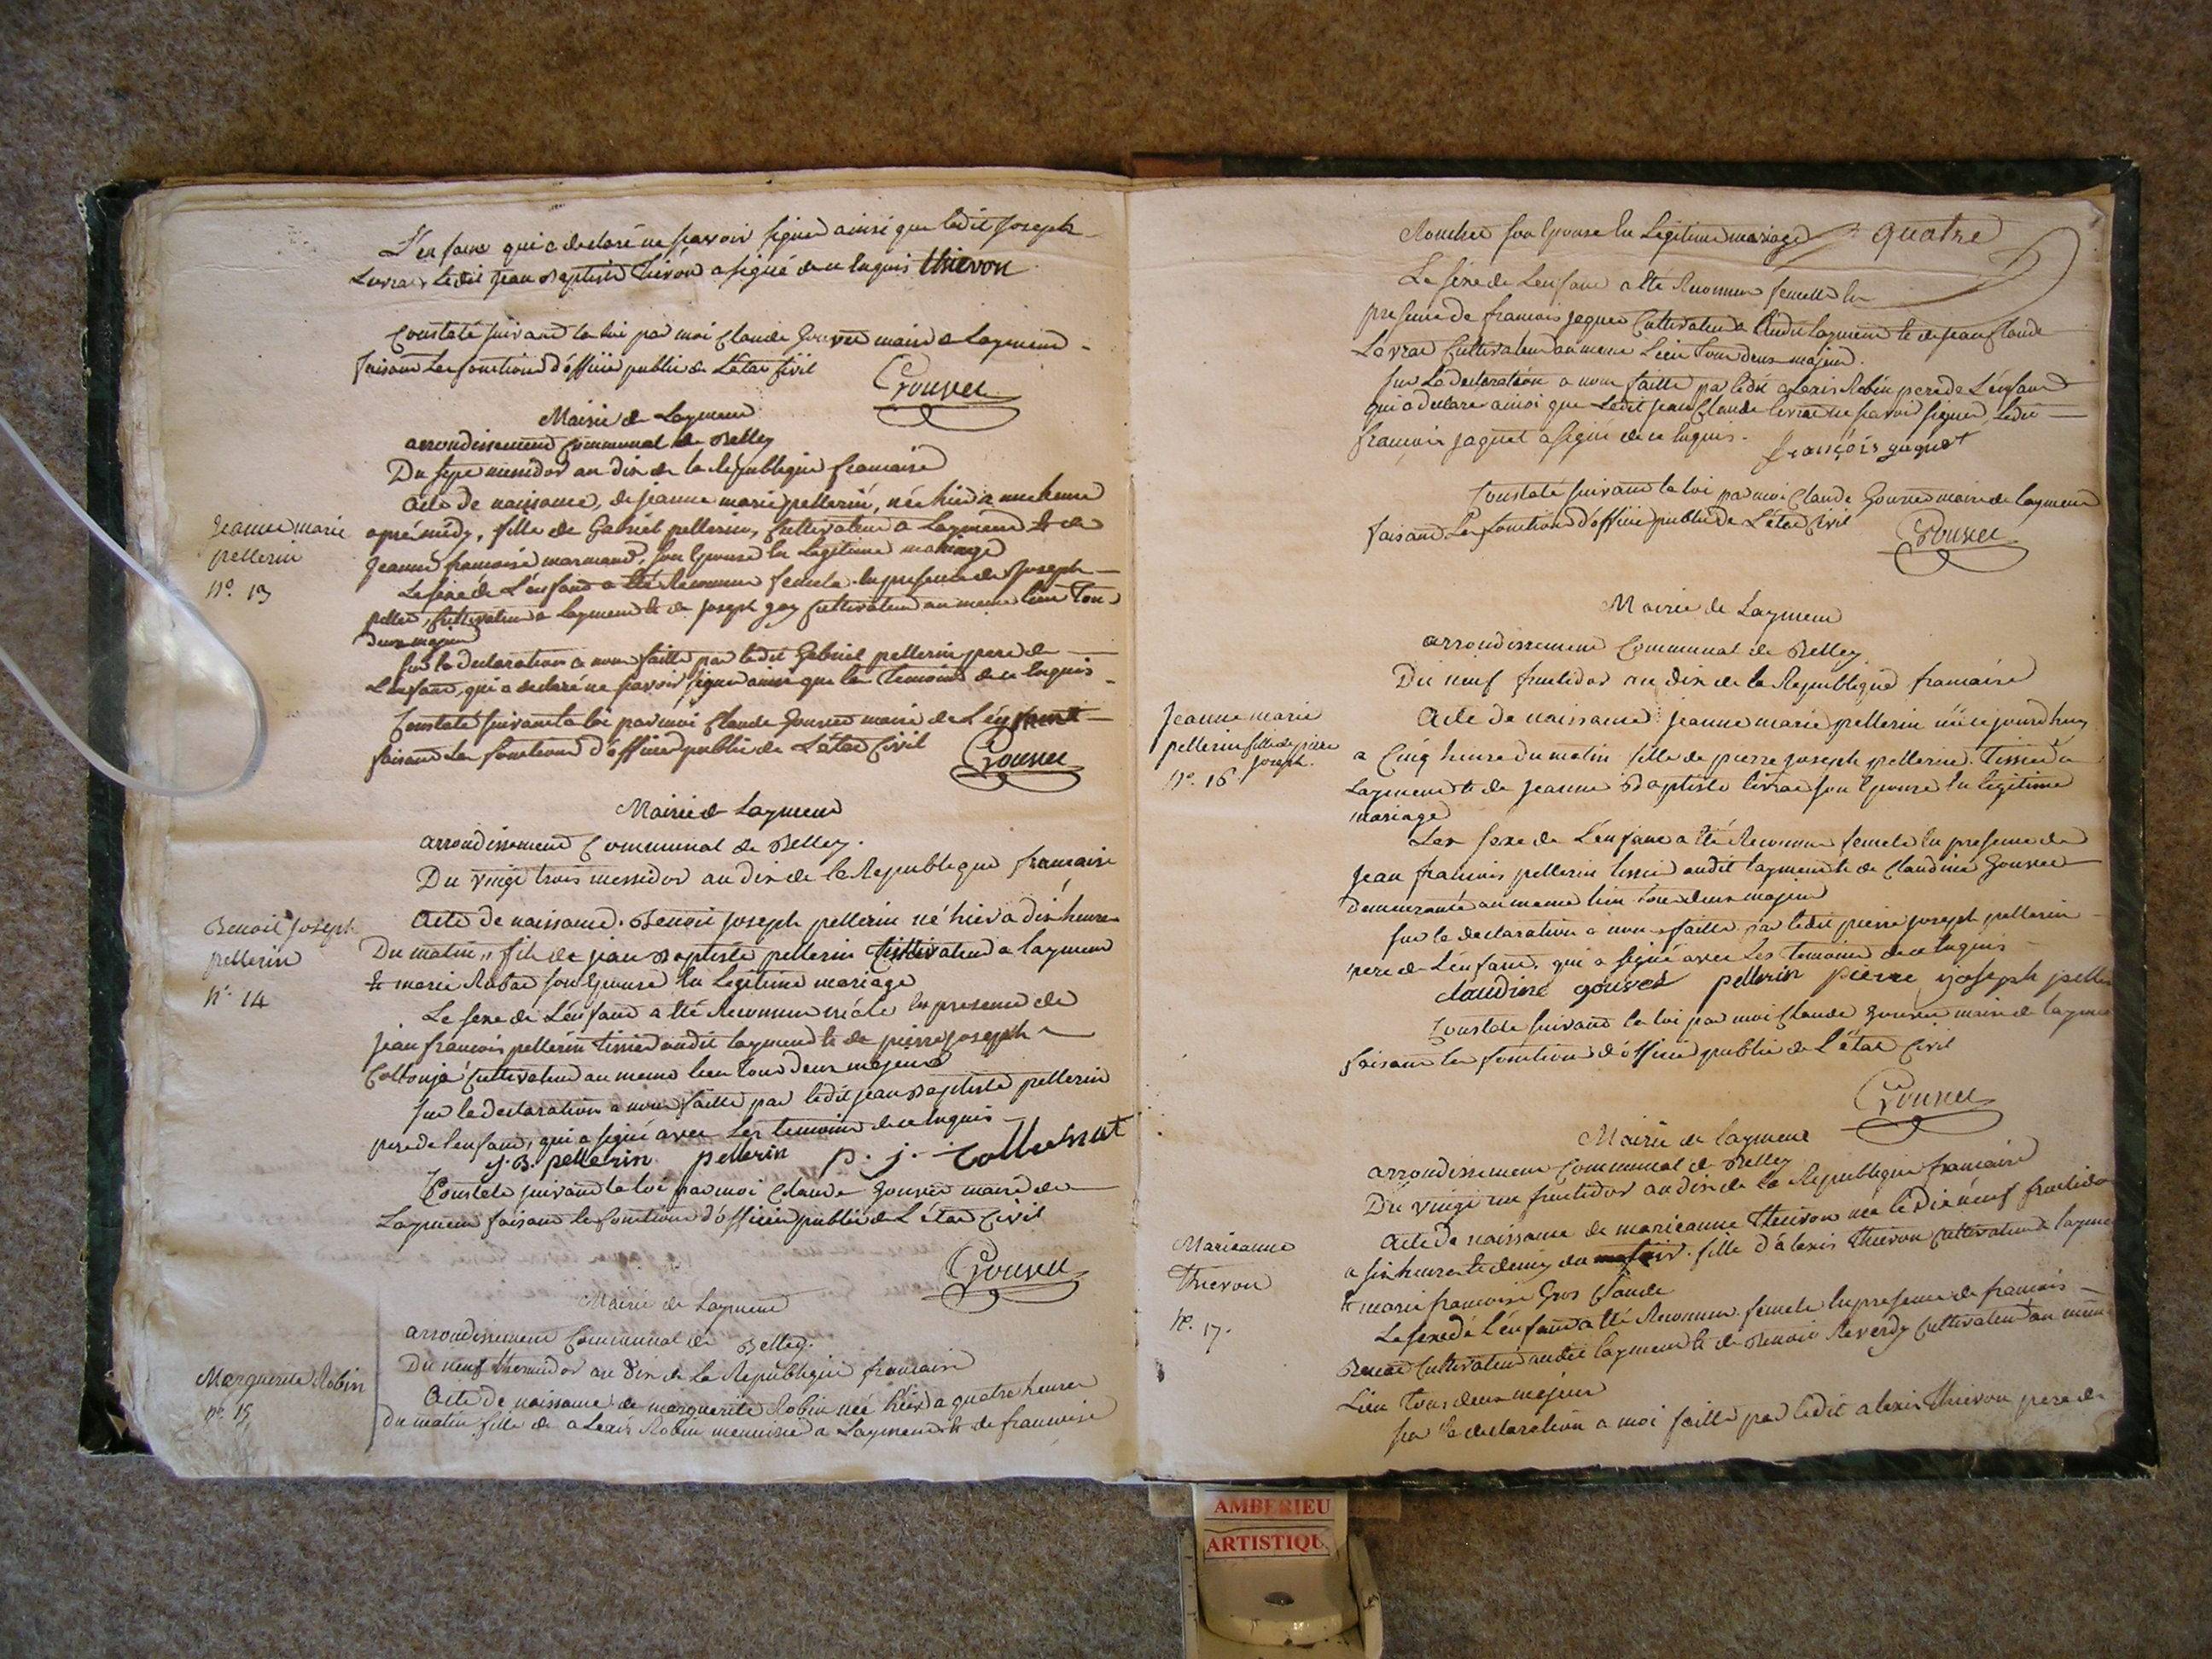 L'enfant qui a declaré ne savoir signer ainsi que ledit Joseph
Livrat ledit Jean Baptiste Thievon a signé de ce enquis thievon
Constaté suivant la loi par moi Claude Gouvet maire de Laymeud
faisant les fonctions d'officier public de L'état Civil
Gouvet
Mairie de Laymend
arrondissement Communal de Belley
Du messidor an dix de la république francaise
Jeanne marie
pellerin
n°. 13
Acte de naissance, de jeanne marie pellerin, née hier a une heure
aprè midy, fille de Gabriel pellerin, Cultivateur a Laymend et de
Jeanne francoise marmand, son Epouse En Legitime mariage
Le sexe de L'enfant a été Reconnu femele. En presence de Joseph
Cultivateur a Laymend et de Joseph gay Cultivateur au meme lieu Tous
Deux majeurs
Sur la declaration a nous faitte par ledit Gabriel pellerin pere de
L'enfant, qui a declaré ne savoir signer ainsi que les Temoins de ce Enquis
Constaté suivant la loi par moi Claude Gouvet maire de
faisant Les fonctions d'officier public de L'état Civil
Gouvet
Mairie de Laymend
arrondissement Communal de Belley.
Du vingt trois messidor an dix de la Republique francaise
Benoit Joseph
pellerin
n°. 14
Acte de naissance. Benoit Joseph pellerin né hier a dix heures
Du matin, fils de jean Baptiste pellerin Cultivateur a laymend
et marie Rabat son Epouse En Legitime mariage
Le sexe de L'enfant a été Reconnu mâle En presence de
jean francois pellerin Tissier audit laymend et de pierre joseph
Cultivateur au meme lieu Tous Deux majeurs
Sur la declaration a nous faitte par ledit jean Baptiste pellerin
pere de l'enfant, qui a signé avec Les temoins de ce Enquis
J. B. pellerin pellerin p. j.
Constaté suivant la loi par moi Claude Gouvet maire de
Laymend faisant les fonctions d'officier public de L'état Civil
Gouvet
Mairie de Laymend
arrondissement Communal de Belley.
Du neuf thermidor an Dix de la Republique francaise
Marguerite Robin
n°. 15
Acte de naissance de marguerite Robin née hier a quatre heures
du matin fille de alexis Robin menuisier a Laymend et de francoise
son Epouse En Legitime mariage quatre
Le sexe de L'enfant a été Reconnu femelle En
presence de francois jaquet Cultivateur audit laymend et de jean Claude
Livrat Cultivateur au meme Lieu Tous Deux majeurs.
Sur La declaration a nous faitte par ledit alexis Robin pere de L'enfant
qui a declaré ainsi que Ledit jean Claude livrat ne savoir signer, Ledit
francois jaquet a signé de ce Enquis. françois jaquet
Constaté suivant la loi par moi Claude Gouvet maire de laymend
faisant Les fonctions d'officier public de L'état Civil
Gouvet
Mairie de Laymend
arrondissement Communal de Belley
Du neuf fructidor an dix de la Republique francaise
Jeanne marie
pellerin fille de pierre
joseph.
n°. 16
Acte de naissance jeanne marie pellerin née ce jourdhuy
a Cinq heure du matin fille de pierre joseph pellerin. Tissier a
Laymend et de jeanne Baptiste livrat son Epouse En legitime
mariage
Le sexe de L'enfant a été Reconnu femele En presence de
jean francois pellerin tissier audit laymend et de Claudine Gouvet
Demeurante au meme lieu Tous deux majeurs
Sur la declaration a nous faitte par ledit pierre joseph pellerin
pere de L'enfant, qui a signé avec Les temoins de ce Enquis
claudine gouvet pellerin pierre joseph
Constaté suivant la loi par moi Claude Gouvet maire de
faisant les fonctions d'officier public de L'état Civil
Gouvet
Mairie de laymend
arrondissement Communal de Belley
Du vingt un fructidor an dix de la Republique francaise
Marieanne
Thievon
n°. 17.
Acte de naissance de marieanne Thievon née le Dix neuf
a six heures et demy du soir. fille d'alexis Thievon Cultivateur a
et marie francoise Gros Claude
Le sexe de L'enfant a été Reconnu femele En presence de francois
Cultivateur audit laymend et de Benoit Reverdy Cultivateur au
Lieu Tous deux majeurs
Sur la declaration a moi faitte par ledit alexis Thievon pere de
AMBERIEU
ARTISTIQU